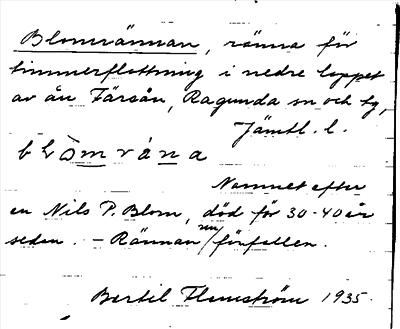 Blomrännan, ränna för
timmerflottning i nedre loppet
av ån Färsån, Ragunda sn och tg,
Jämtl. l.
Namnet efter
en Nils P. Blom, död för 30-40 år
sedan. – Rännan nu förfallen.
Bertil Flemström 1935.